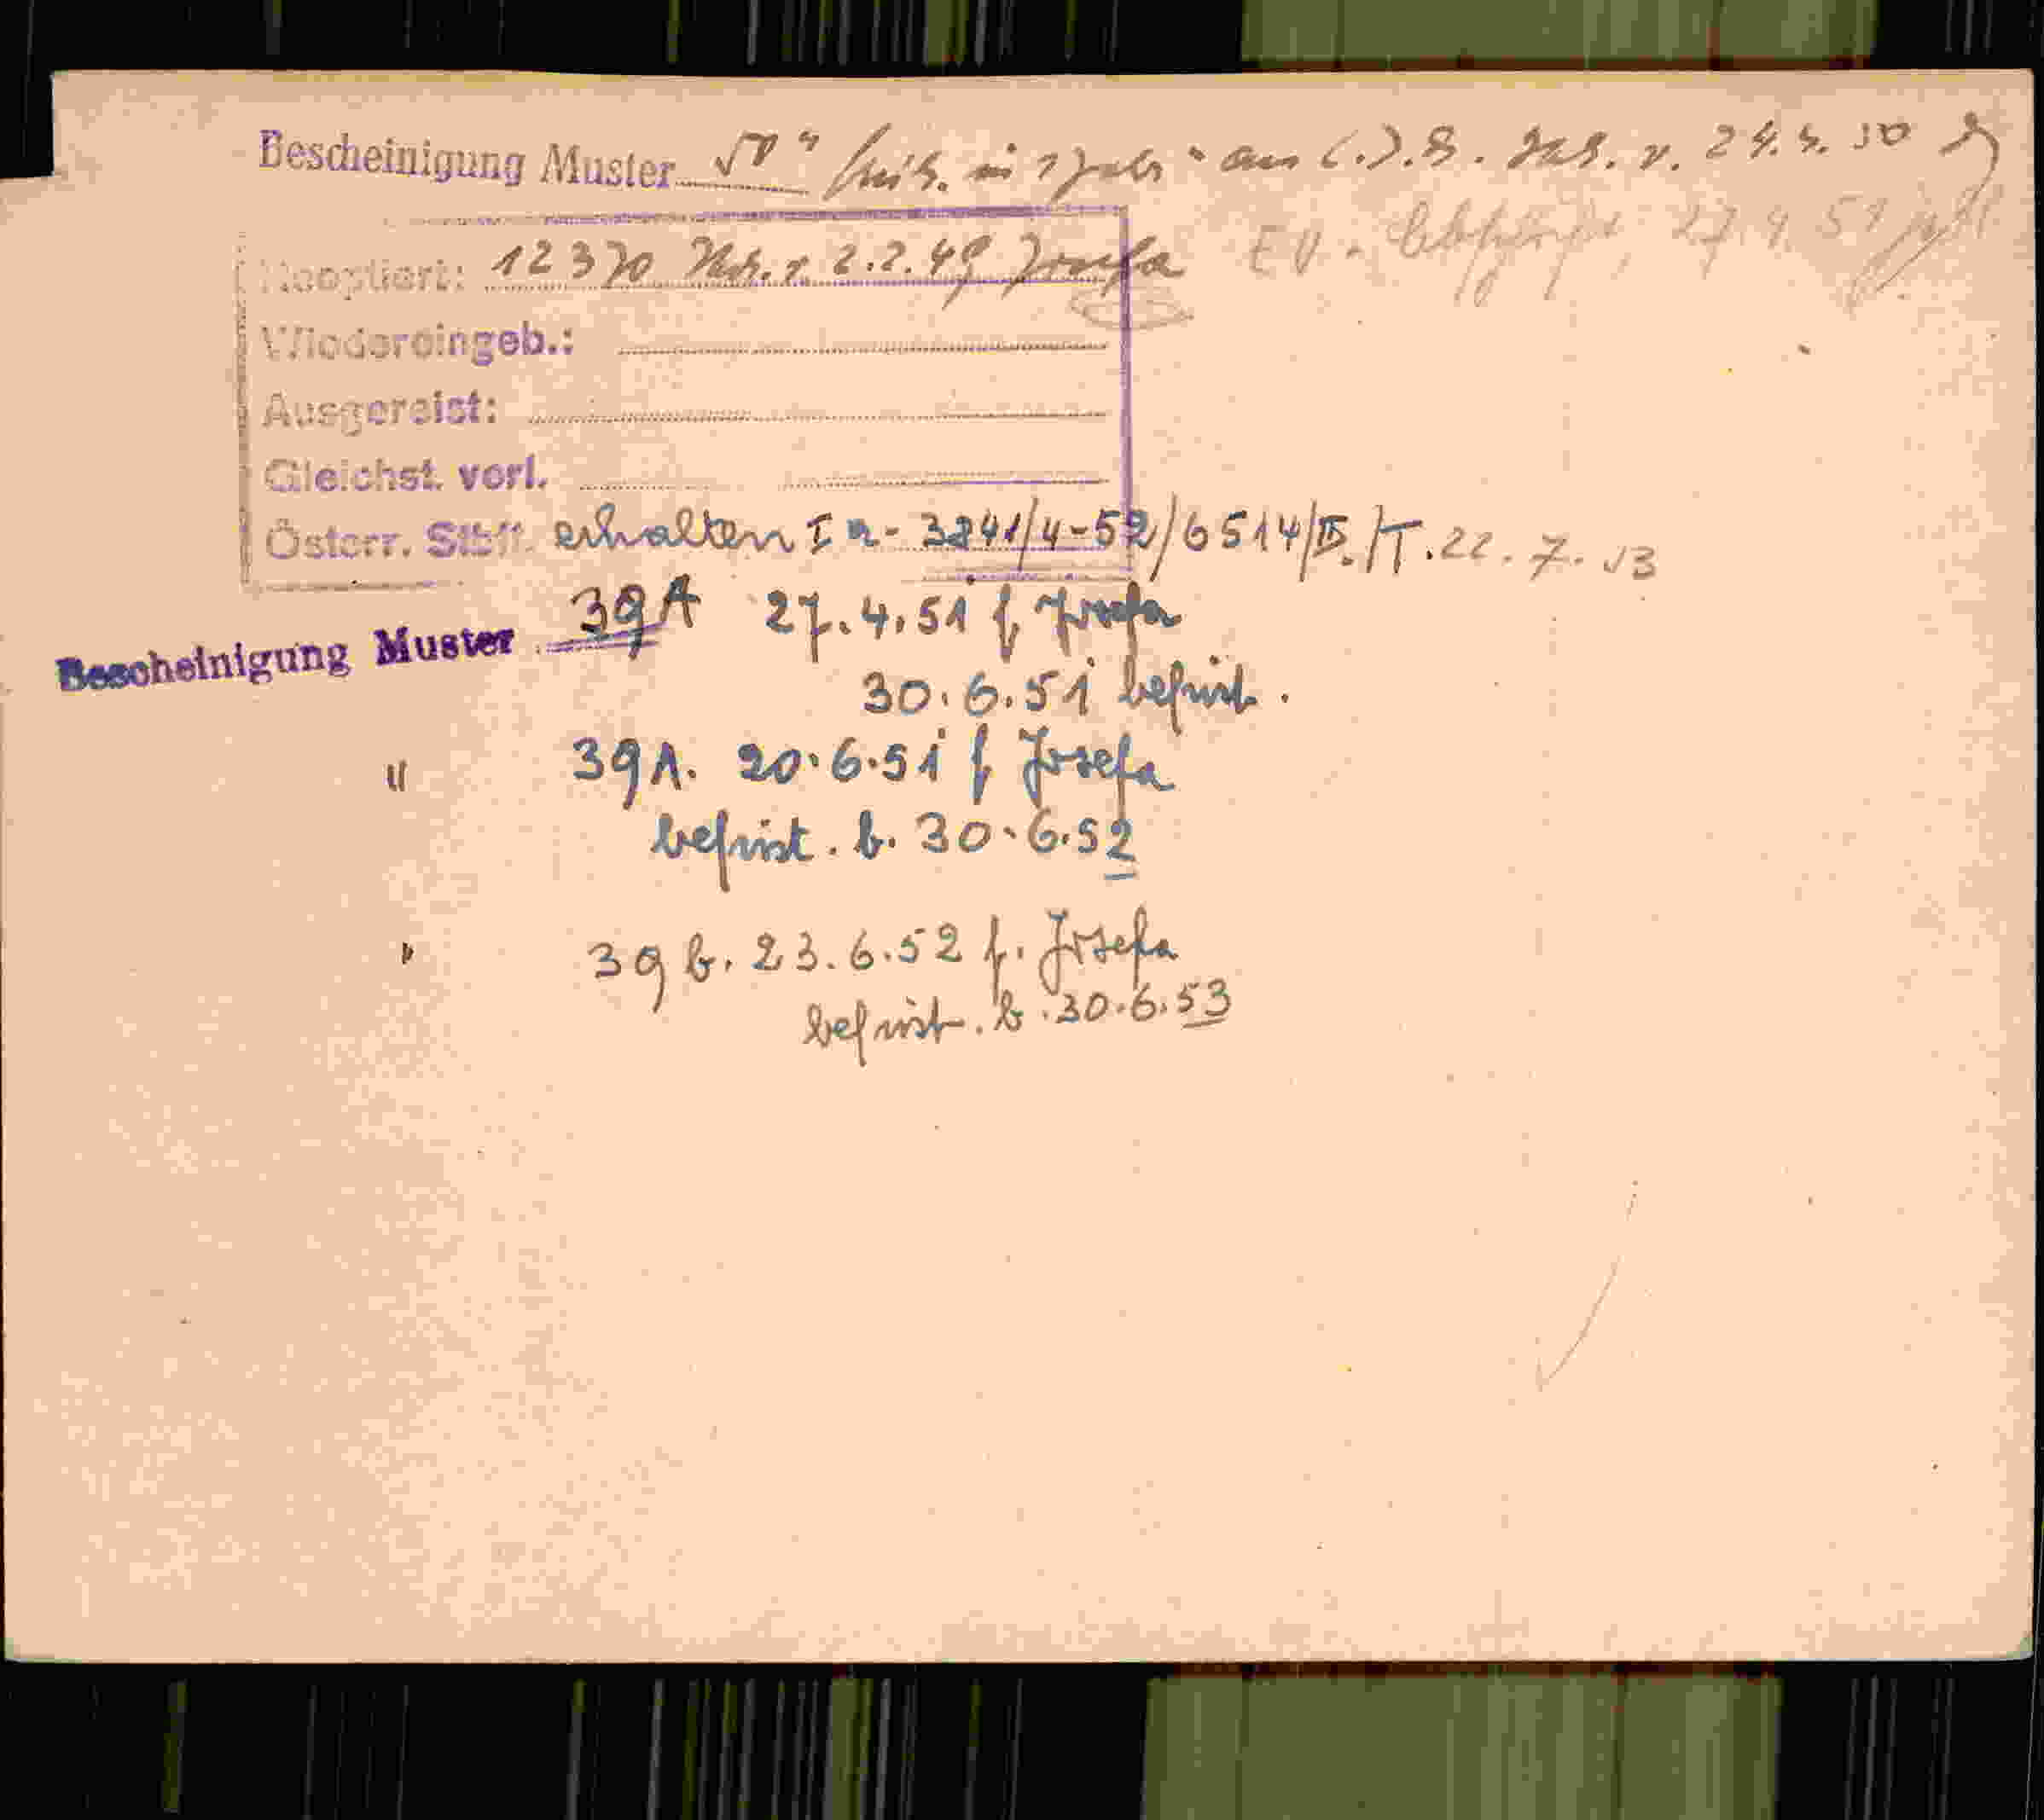 Bescheinigung Muster 50" v. 24.4.50
Rückoptiert: 12370 v. 2.2.49 Josefa
EV - 27.4.51
Wiedereingeb.:
Ausgereist:
Gleichst. verl.
Österr. Stb. erhalten I a - 3241/4-52/6514/II./T. 22. 7. 53
Bescheinigung Muster 39A 27.4.51 f Josefa
30.6.51 befrist.
" 39A. 20.6.51 f Josefa
befrist. b. 30.6.52
" 39 b. 23.6.52 f. Josefa
befrist. b. 30.6.53